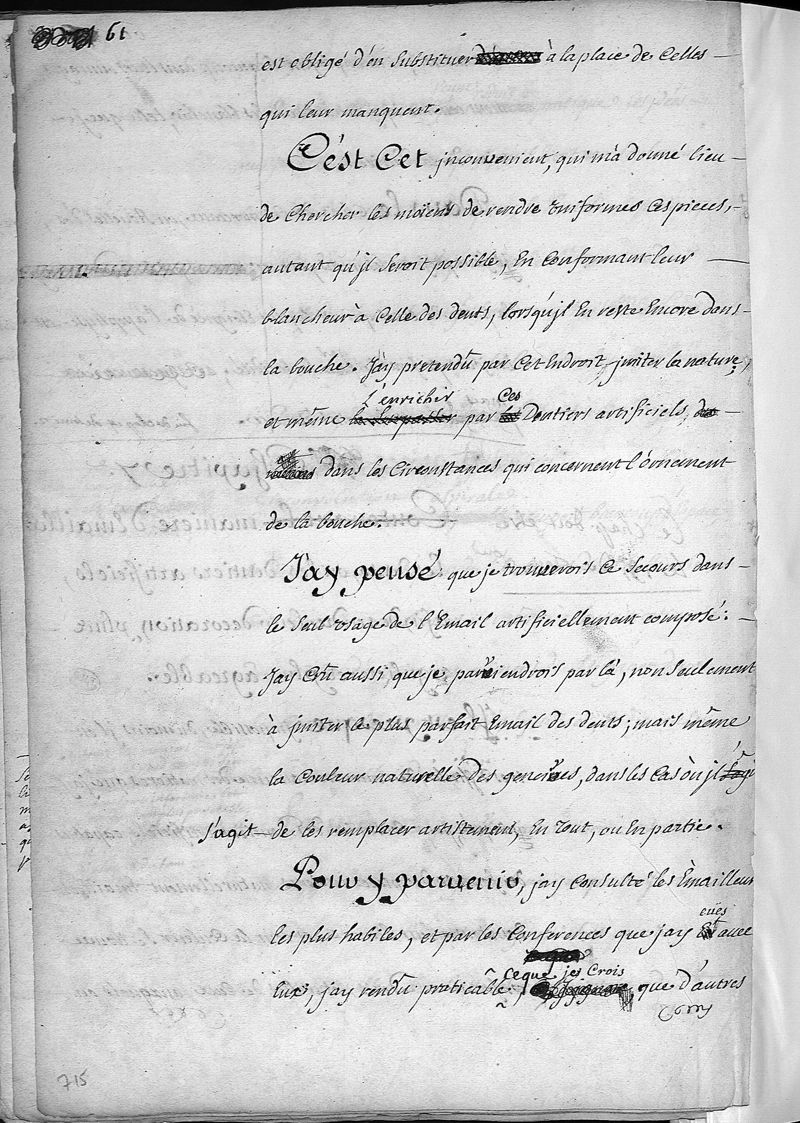 61
est obligé d'en substituer à la place de Celles
qui leur manquent.
C'est Cet jnconuenient, qui m'a donné lieu
de Chercher les moiens de rendre Uniformes Ces pieces,
autant qu'jl seroit possible, En Conformant leur
blancheur à Celle des dents, lorsqu'jl En reste Encore dans
la bouche. J'ay pretendû par Cet Endroit, jmiter la nature,
l'enrichir Ces
et même le surpasser par Dentiers artificiels,
et
dans les Circonstances qui concernent l'ornement
de la bouche.
J'ay pensé que je trouuerois Ce secours dans
le seul Usage de l'Email artificiellement composé:
Jay Crû aussi que je paruiendrois par là, non seulement
à jmiter le plus parfait Email des dents; mais même
la Couleur naturelle des genciues, dans les Cas où jl s'agi
s'agit de les remplacer artistement, En tout, ou En partie.
Pour y paruenir, jay Consulté les Emailleurs
les plus habiles, et par les Conferences que jay
eües
auec
Ceque je Crois
Eux, jay rendû praticable, que d'autres
715